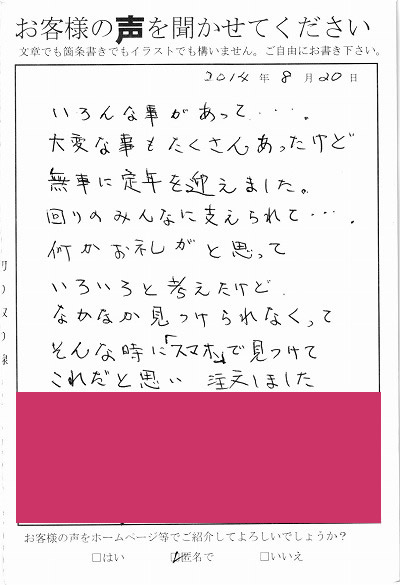 お客様の声を聞かせてください
文章でも箇条書きでもイラストでも構いません。ご自由にお書き下さい。
2014 年 8 月 20 日
いろんな事があって・・・・。
大変な事もたくさんあったけど
無事に定年を迎えました。
回りのみんなに支えられて・・・.
何かお礼がと思って
いろいろと考えたけど.
なかなか見つけられなくって
そんな時に「スマホ」で見つけて
これだと思い 注文しました
お客様の声をホームページ等でご紹介してよろしいでしょうか?
□はい □匿名で □いいえ